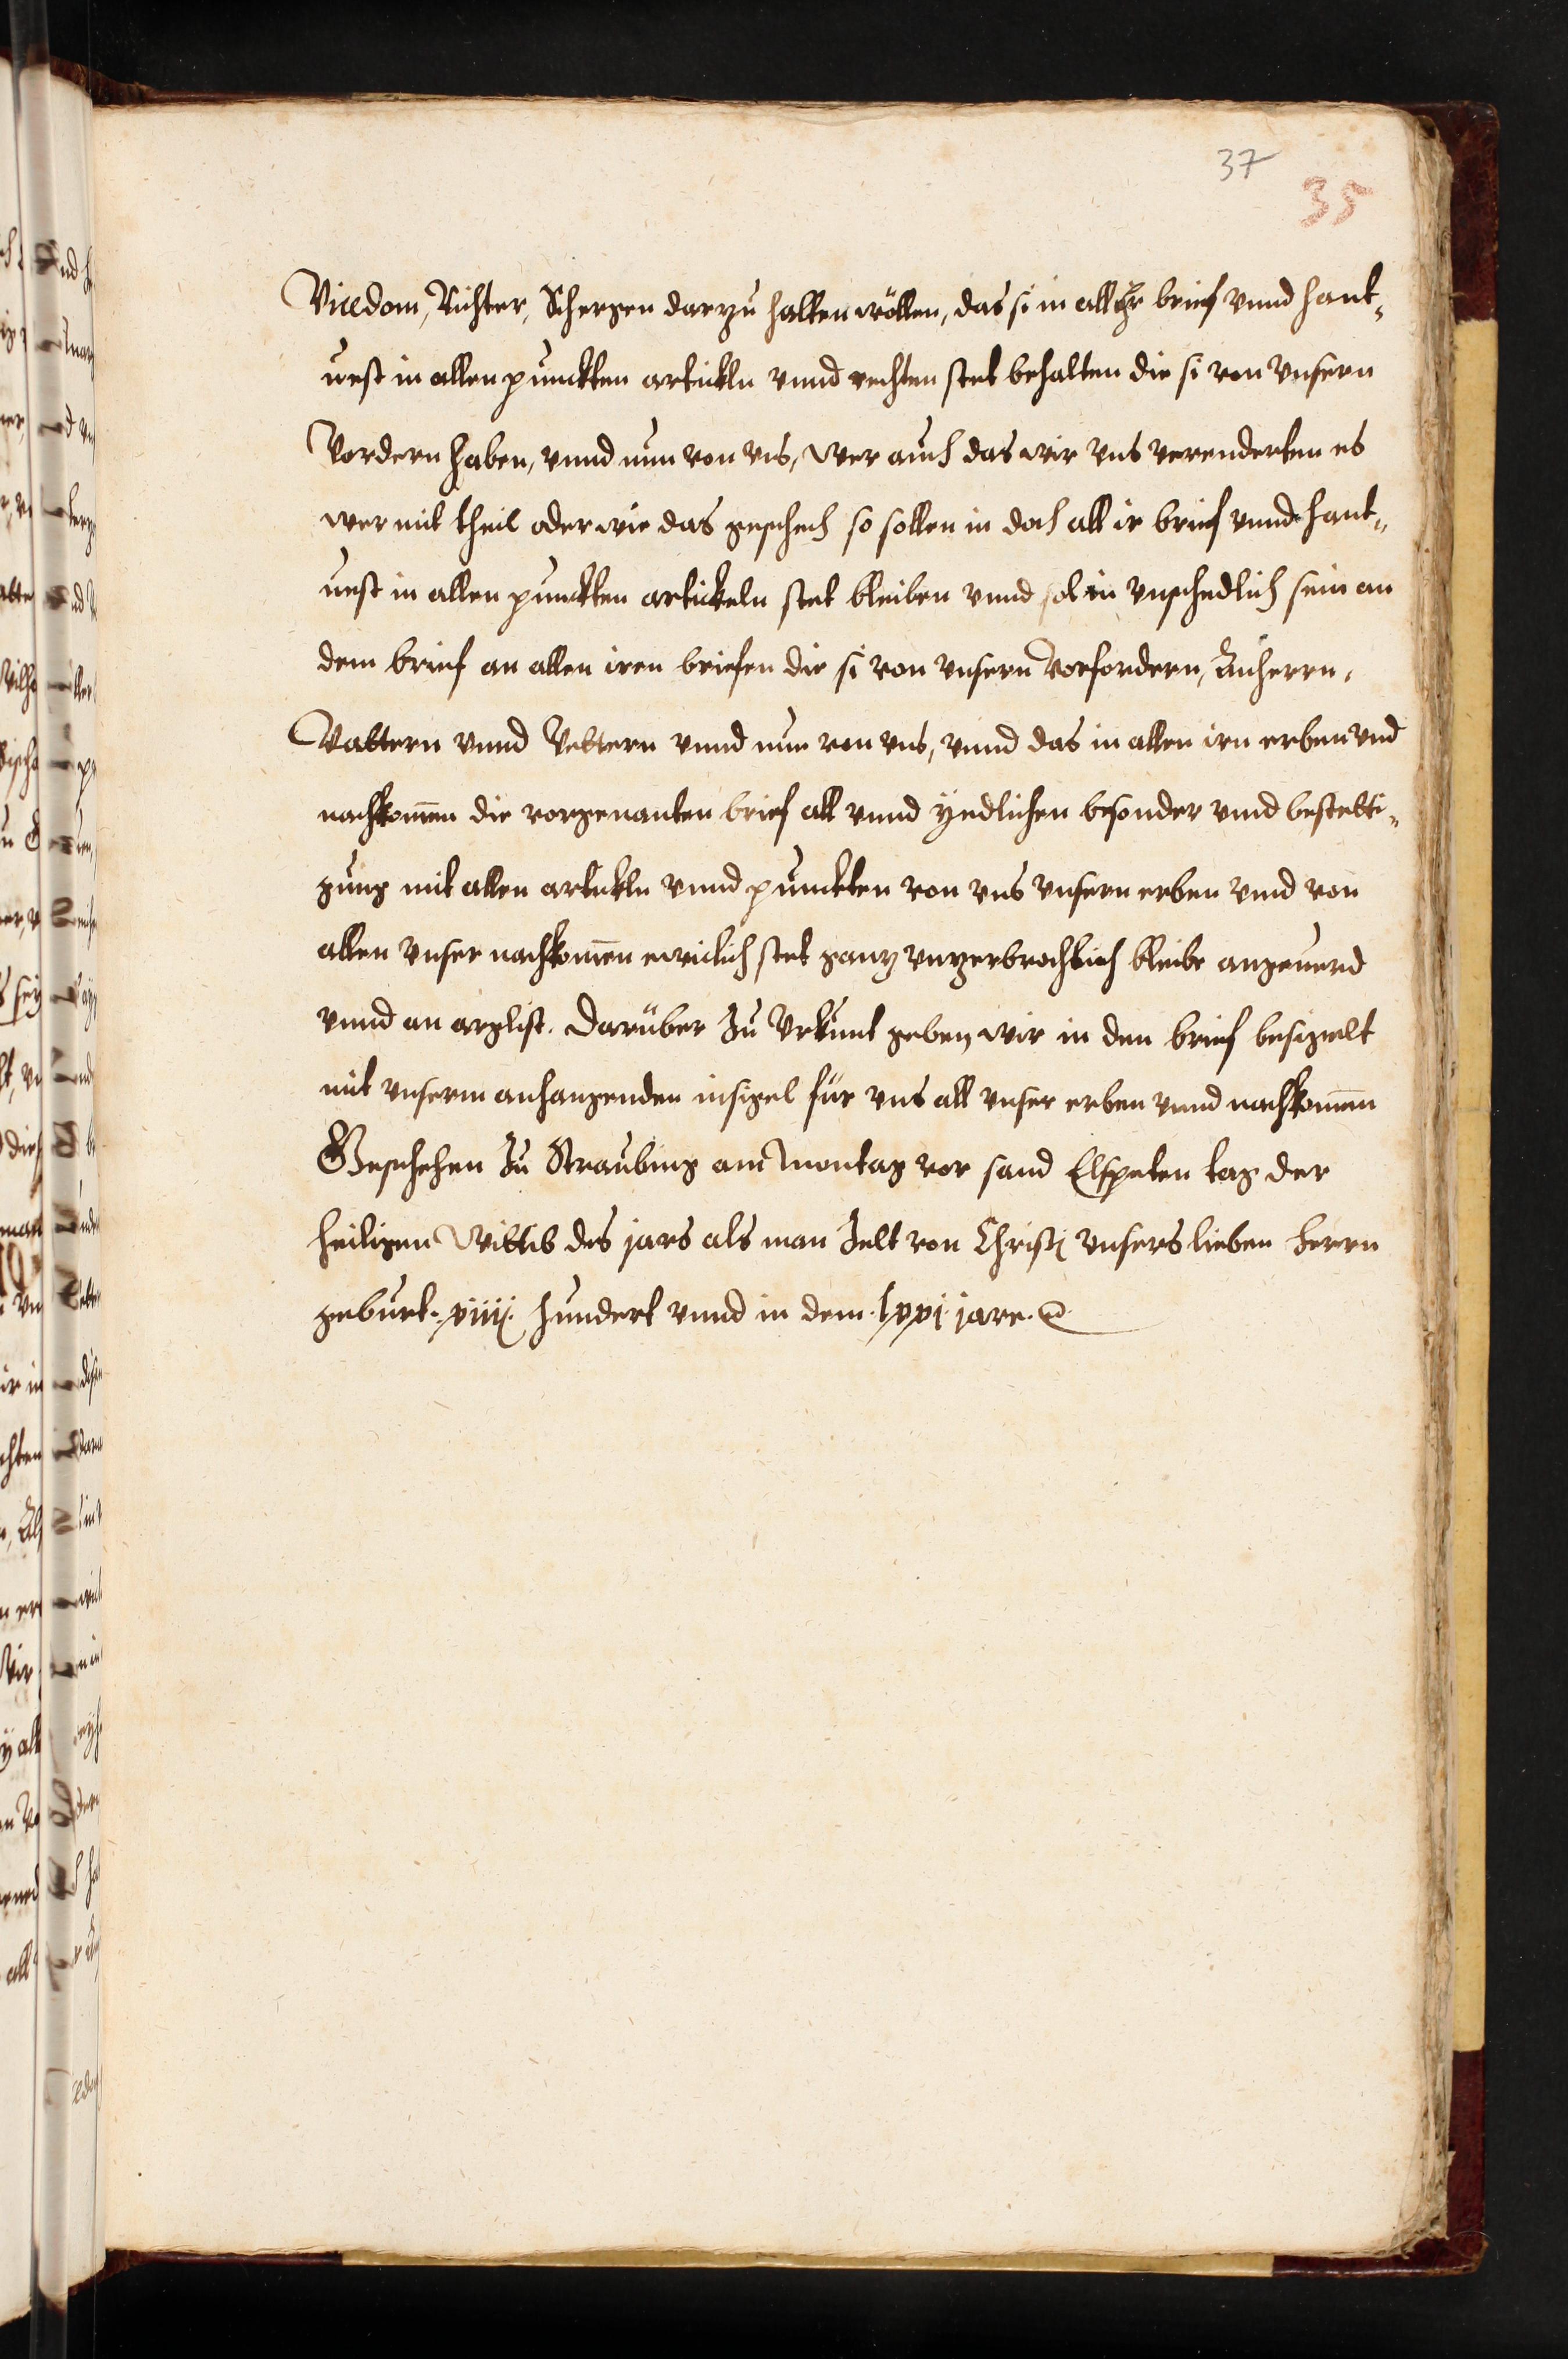 37
35
Vicedom, Richter, Schergen darzu halten wöllen, das si in all ir brief vnnd hant„
uest in allen punckten artickln vnnd rechten stet behalten die si von vnsern
Vordern haben, vnnd nun von vns, wer auch das wir vns verenderten es
wer mit theil oder wie das geschech so sollen in doch all ir brief vnnd hant„
uest in allen punckten artickeln stet bleiben vnnd sol in vnschedlich sein an
dem brief an allen iren briefen die si von vnsern Vorfordern, Änherrn,
Vattern vnnd Vettern vnnd nun von vns, vnnd das in allen irn erben vnd
nachkom̄en die vorgenanten brief all vnnd yedlichen besonder vnnd bestetti„
gung mit allen artickln vnnd punckten von vns vnsern erben vnnd von
allen vnser nachkom̄en ewiclich stet ganz vnzerbrochlich bleibe angeuerd
vnnd an arglist. Darüber zu Vrkunt geben wir in den brief besigelt
mit vnserm anhangenden insigel für vns all vnser erben vnnd nachkom̄en
Geschehen zu Straubing am Montag vor sand Elspeten tag der
heiligen Wittib des jars als man zelt von Christj vnsers lieben herrn
geburt. xiiij. hundert vnnd in dem. lxxj. jare.